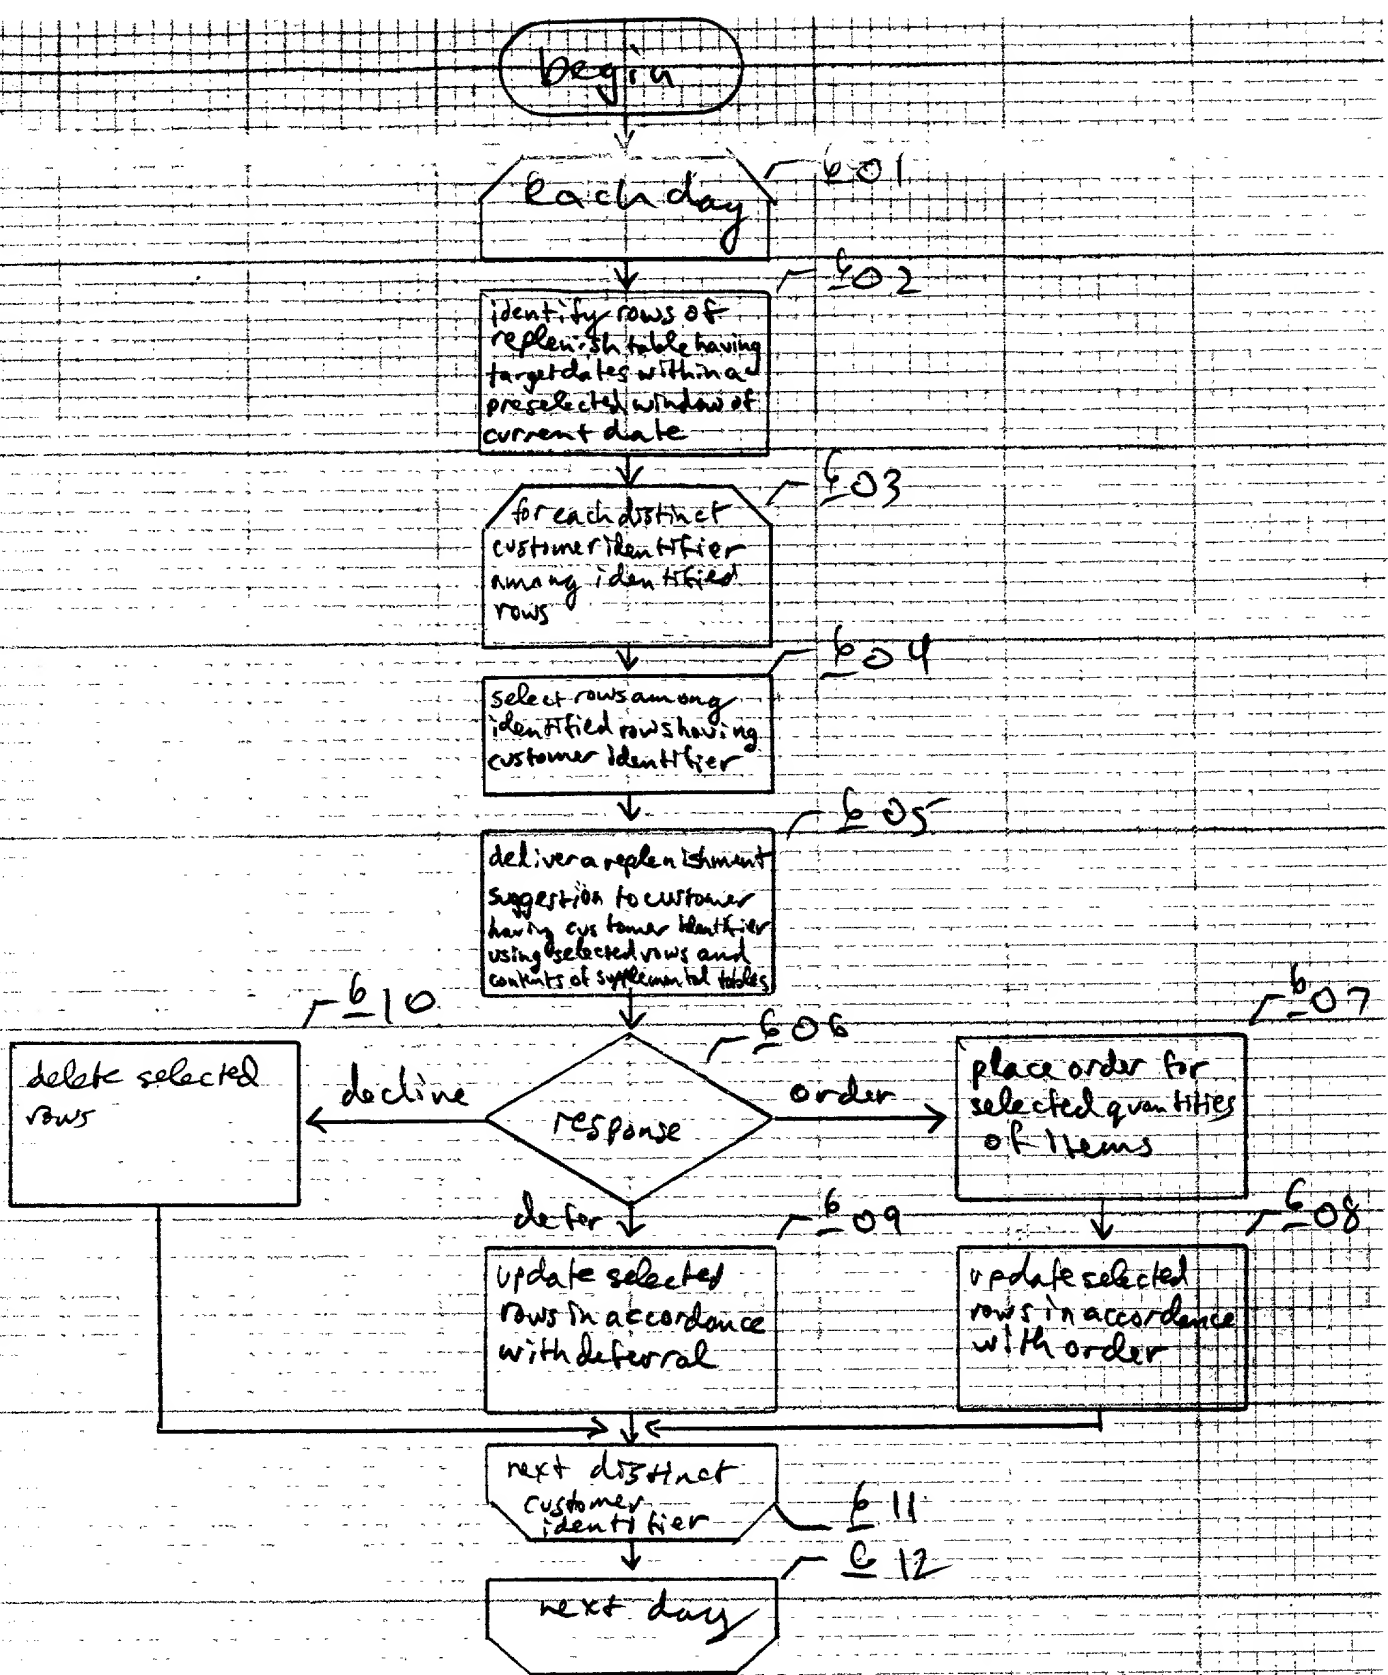 begin
each day
601
602
identify rows of
replenish table having
target dates within a
preselected window of
current date
603
for each distinct
customer identifier
among identified
rows
604
select rows among
identified rows having
customer identifier
605
deliver a replenishment
suggestion to customer
having customer identifier
using selected rows and
contents of supplemental tables
610
delete selected
rows
decline
606
response
order
607
place order for
selected quantities
of items
defer
609
update selected
rows in accordance
with deferral
608
update selected
rows in accordance
with order
next distinct
customer
identifier
611
612
next day